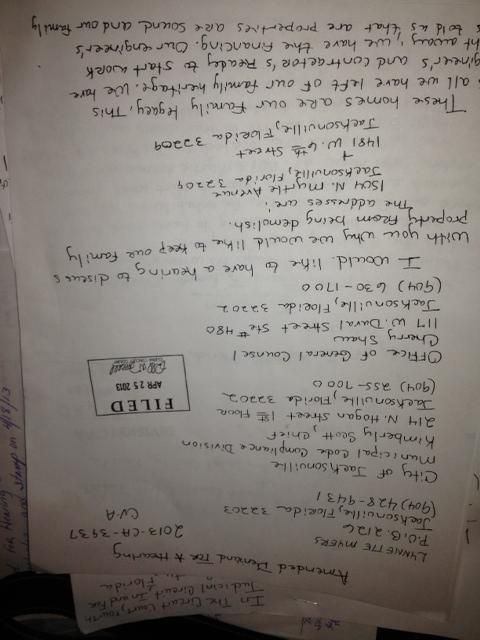 In The Circuit Court, Fourth
Judicial Circuit, In and For
Florida
Amended Demand For A Hearing
LYNNETTE MYERS
P.O.B. 2126
Jacksonville, Florida 32203
(904) 428-9431
2013-CA-3937
CV-A
City of Jacksonville
Municipal Code Compliance Division
Kimberly Scott, Chief
214 N. Hogan Street 1st Floor
Jacksonville, Florida 32202
(904) 255-7000
FILED
APR 25 2013
Office of General Counsel
Cherry Shaw
117 W. Duval Street Ste #480
Jacksonville, Florida 32202
(904) 630-1700
I would like to have a hearing to discuss
with you why we would like to keep our family
property from being demolish.
The addresses are:
1504 N. Myrtle Avenue
Jacksonville, Florida 32209
1481 W. 6th Street
Jacksonville, Florida 32209
These homes are our family legacy, This,
all we have left of our family heritage. We have
engineer's and contractor's Ready to start work
right away, we have the financing. Our engineer's
told us that are properties are sound and our family